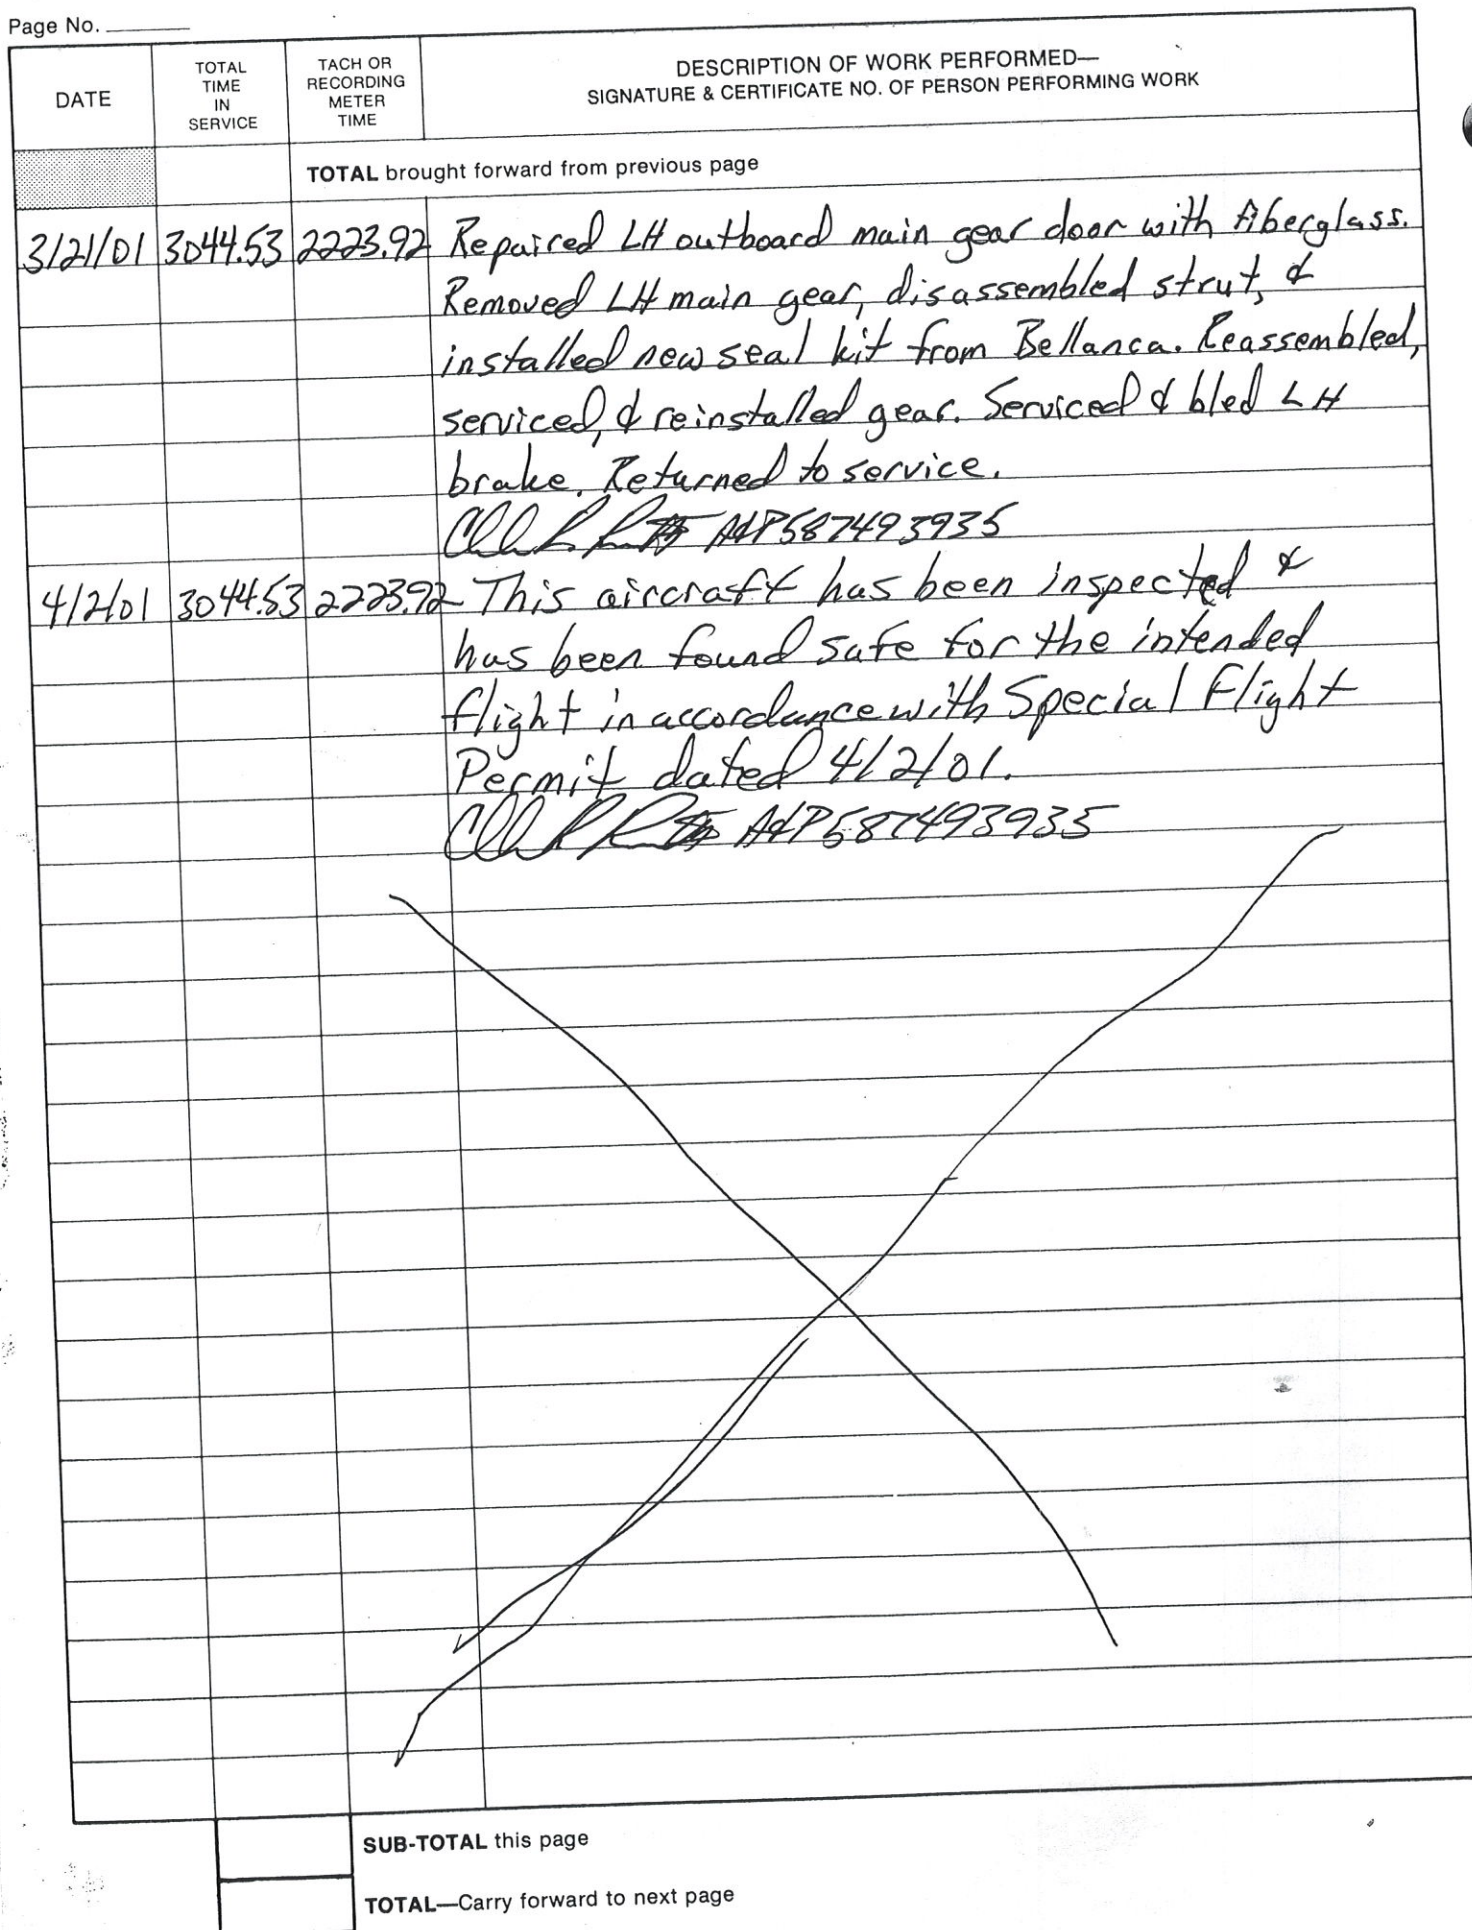 Page No.
DATE
TOTAL
TIME
IN
SERVICE
TACH OR
RECORDING
METER
TIME
DESCRIPTION OF WORK PERFORMED—
SIGNATURE & CERTIFICATE NO. OF PERSON PERFORMING WORK
TOTAL brought forward from previous page
3/21/01 3044.53 2223.92 Repaired LH outboard main gear door with fiberglass.
Removed LH main gear, disassembled strut, &
installed new seal kit from Bellanca. Reassembled,
serviced, & reinstalled gear. Serviced & bled LH
brake. Returned to service.
A&P587493935
4/2/01 3044.53 2223.92 This aircraft has been inspected &
has been found safe for the intended
flight in accordance with Special Flight
Permit dated 4/2/01.
A&P587493935
SUB-TOTAL this page
TOTAL—Carry forward to next page